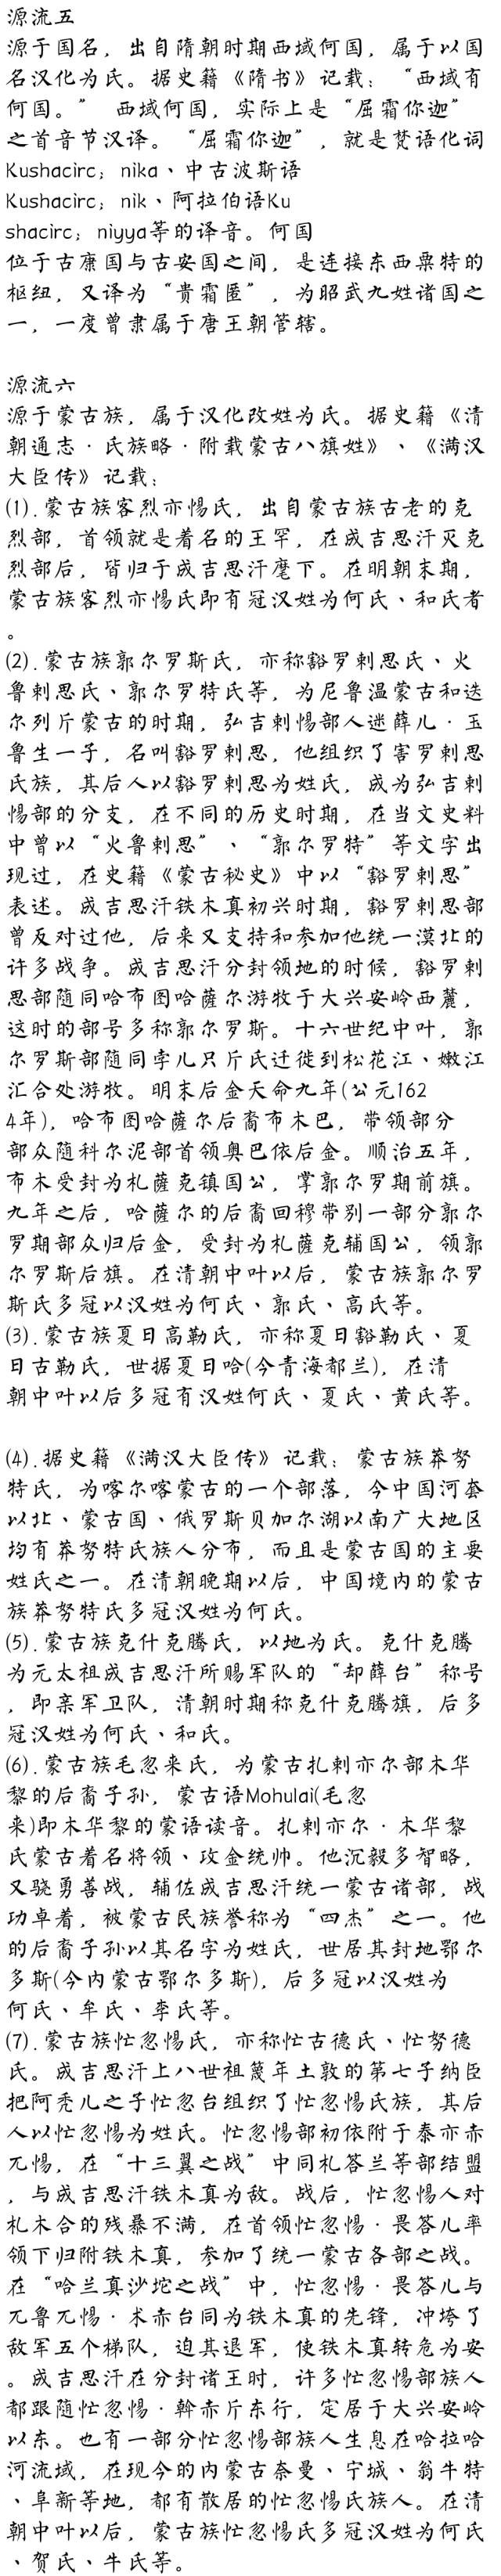 源流五
源于国名，出自隋朝时期西域何国，属于以国
名汉化为氏。据史籍《隋书》记载：“西域有
何国。” 西域何国，实际上是“屈霜你迦”
之首音节汉译。“屈霜你迦”，就是梵语化词
Kushacirc；nika、中古波斯语
Kushacirc；nik、阿拉伯语Ku
shacirc；niyya等的译音。何国
位于古康国与古安国之间，是连接东西粟特的
枢纽，又译为“贵霜匿”，为昭武九姓诸国之
一，一度曾隶属于唐王朝管辖。
源流六
源于蒙古族，属于汉化改姓为氏。据史籍《清
朝通志·氏族略·附载蒙古八旗姓》、《满汉
大臣传》记载：
⑴.蒙古族客烈亦惕氏，出自蒙古族古老的克
烈部，首领就是着名的王罕，在成吉思汗灭克
烈部后，皆归于成吉思汗麾下。在明朝末期，
蒙古族客烈亦惕氏即有冠汉姓为何氏、和氏者
。
⑵.蒙古族郭尔罗斯氏，亦称豁罗剌思氏、火
鲁剌思氏、郭尔罗特氏等，为尼鲁温蒙古和迭
尔列斤蒙古的时期，弘吉剌惕部人迷薛儿·玉
鲁生一子，名叫豁罗剌思，他组织了害罗剌思
氏族，其后人以豁罗剌思为姓氏，成为弘吉剌
惕部的分支，在不同的历史时期，在当文史料
中曾以“火鲁剌思”、“郭尔罗特”等文字出
现过，在史籍《蒙古秘史》中以“豁罗剌思”
表述。成吉思汗铁木真初兴时期，豁罗剌思部
曾反对过他，后来又支持和参加他统一漠北的
许多战争。成吉思汗分封领地的时候，豁罗剌
思部随同哈布图哈薩尔游牧于大兴安岭西麓，
这时的部号多称郭尔罗斯。十六世纪中叶，郭
尔罗斯部随同孛儿只斤氏迁徙到松花江、嫩江
汇合处游牧。明末后金天命九年(公元162
4年)，哈布图哈薩尔后裔布木巴，带领部分
部众随科尔泥部首领奥巴依后金。顺治五年，
布木受封为札薩克镇国公，掌郭尔罗期前旗。
九年之后，哈薩尔的后裔回穆带别一部分郭尔
罗期部众归后金，受封为札薩克辅国公，领郭
尔罗斯后旗。在清朝中叶以后，蒙古族郭尔罗
斯氏多冠以汉姓为何氏、郭氏、高氏等。
⑶.蒙古族夏日高勒氏，亦称夏日豁勒氏、夏
日古勒氏，世据夏日哈(今青海都兰)，在清
朝中叶以后多冠有汉姓何氏、夏氏、黄氏等。
⑷.据史籍《满汉大臣传》记载：蒙古族莽努
特氏，为喀尔喀蒙古的一个部落，今中国河套
以北、蒙古国、俄罗斯贝加尔湖以南广大地区
均有莽努特氏族人分布，而且是蒙古国的主要
姓氏之一。在清朝晚期以后，中国境内的蒙古
族莽努特氏多冠汉姓为何氏。
⑸.蒙古族克什克腾氏，以地为氏。克什克腾
为元太祖成吉思汗所赐军队的“却薛台”称号
，即亲军卫队，清朝时期称克什克腾旗，后多
冠汉姓为何氏、和氏。
⑹.蒙古族毛忽来氏，为蒙古扎剌亦尔部木华
黎的后裔子孙，蒙古语Mohulai(毛忽
来)即木华黎的蒙语读音。扎剌亦尔·木华黎
氏蒙古着名将领、攻金统帅。他沉毅多智略，
又骁勇善战，辅佐成吉思汗统一蒙古诸部，战
功卓着，被蒙古民族誉称为“四杰”之一。他
的后裔子孙以其名字为姓氏，世居其封地鄂尔
多斯(今内蒙古鄂尔多斯)，后多冠以汉姓为
何氏、牟氏、李氏等。
⑺.蒙古族忙忽惕氏，亦称忙古德氏、忙努德
氏。成吉思汗上八世祖篾年土敦的第七子纳臣
把阿秃儿之子忙忽台组织了忙忽惕氏族，其后
人以忙忽惕为姓氏。忙忽惕部初依附于泰亦赤
兀惕，在“十三翼之战”中同札答兰等部结盟
，与成吉思汗铁木真为敌。战后，忙忽惕人对
札木合的残暴不满，在首领忙忽惕·畏答儿率
领下归附铁木真，参加了统一蒙古各部之战。
在“哈兰真沙坨之战”中，忙忽惕·畏答儿与
兀鲁兀惕·术赤台同为铁木真的先锋，冲垮了
敌军五个梯队，迫其退军，使铁木真转危为安
。成吉思汗在分封诸王时，许多忙忽惕部族人
都跟随忙忽惕·斡赤斤东行，定居于大兴安岭
以东。也有一部分忙忽惕部族人生息在哈拉哈
河流域，在现今的内蒙古奈曼、宁城、翁牛特
、阜新等地，都有散居的忙忽惕氏族人。在清
朝中叶以后，蒙古族忙忽惕氏多冠汉姓为何氏
、贺氏、牛氏等。